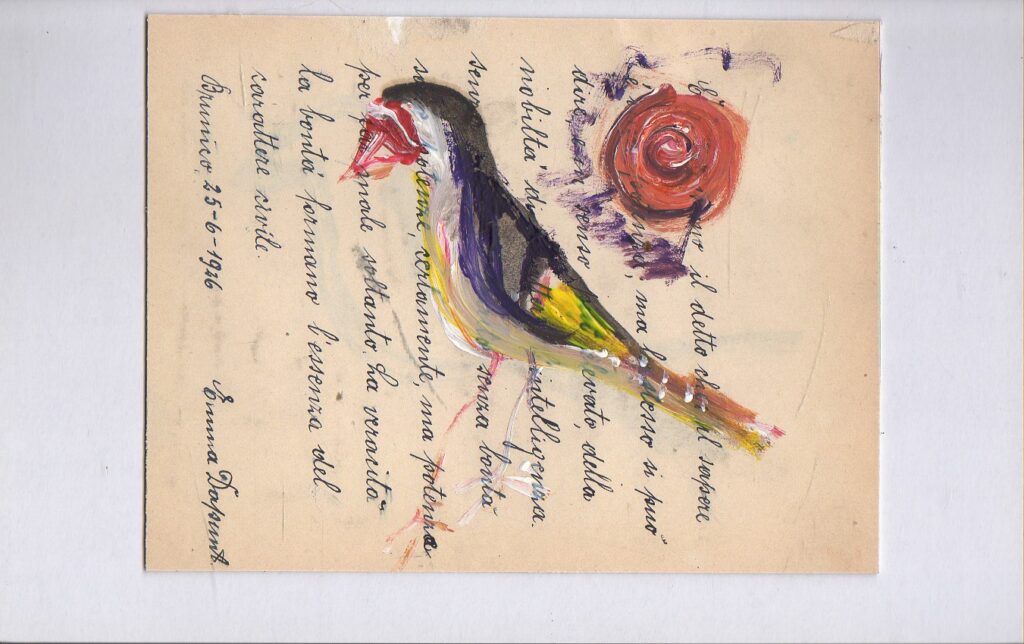 E' il detto che il sapere
è ma adesso si può
dire senno della
nobiltà intelligenza.
senza bontà
certamente, ma potenza
per male soltanto, ha veracità
la bontà formano l'essenza del
carattere civile.
Brunico, 25-6-1926 Emma Dapunt.